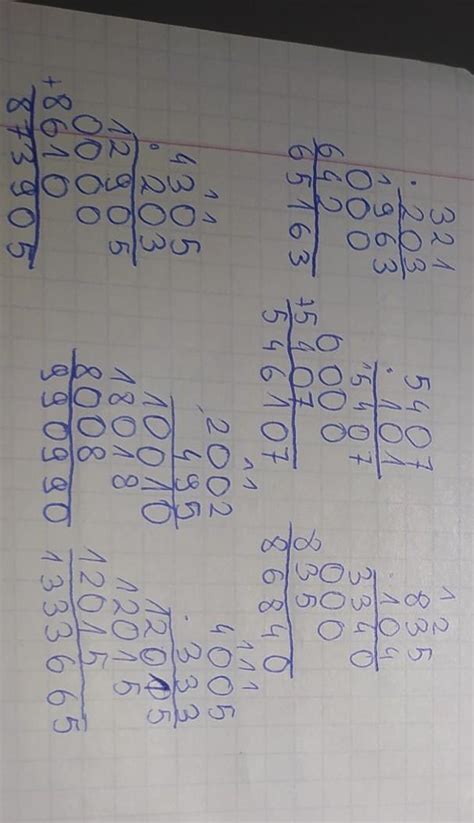 321
· 203
1963
000
642
65163
5407
· 101
15407
0000
+5407
546107
12
835
· 104
3340
000
835
86840
11
4305
· 203
12905
0000
+8610
873905
11
2002
495
10010
18018
8008
990990
111
4005
· 333
12015
12015
12015
1333665